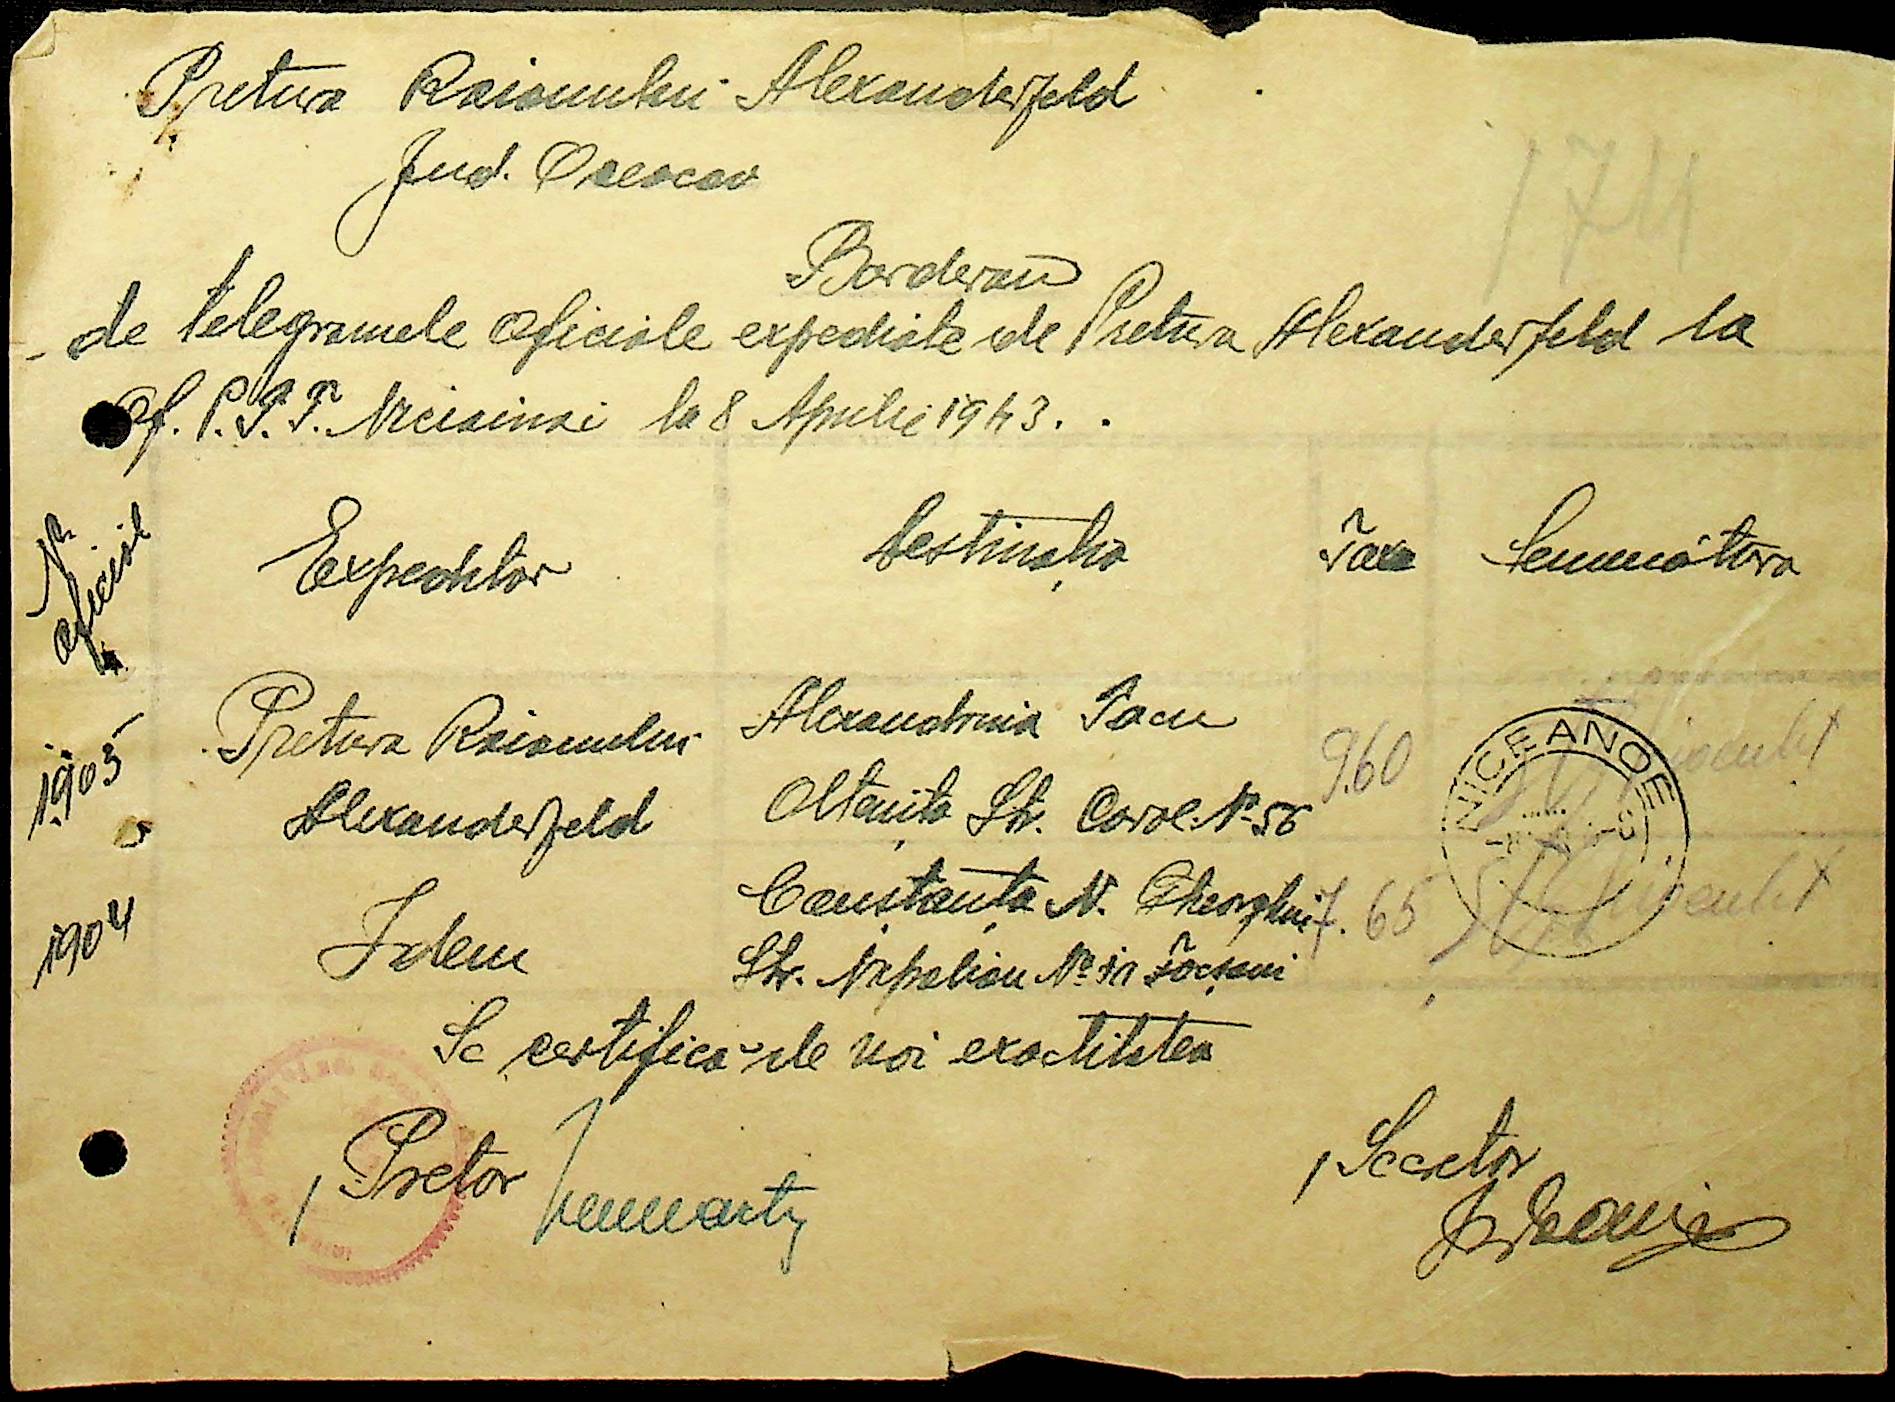 Pretura Raionului Alexanderfeld
Jud. Oceacov
1711
Borderou
de telegramele oficiale expediate de Pretura Alexanderfeld la
Of. P.T.T. la 8 Aprilie 1943.
No oficial
Expeditor
Destinația
Taxa
Semnătura
1903
Pretura Raionului
Alexanderfeld
Alexandrina Iacu
Oltenița Str. Carol No 56
960
1904
Idem
Constanța N. Gheorghiu
Str. No Focșani
7.65
NICEANOE
Se certifică de noi exactitatea
Pretor
Secretar